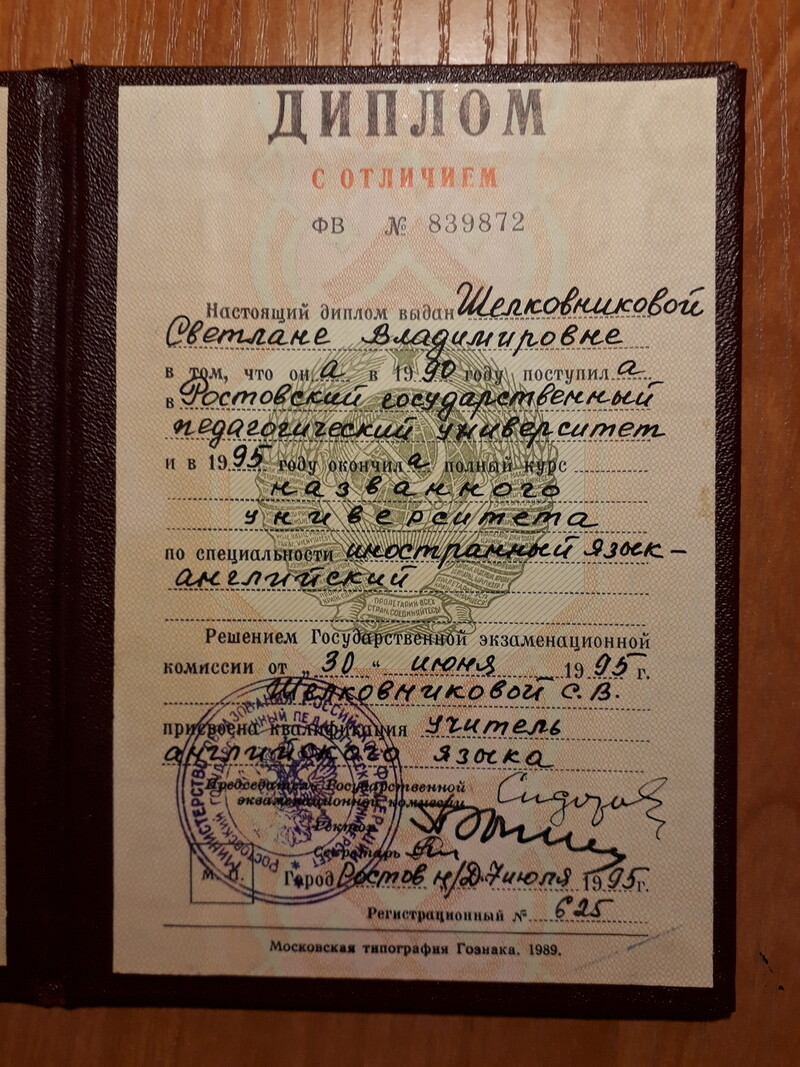 ДИПЛОМ
С ОТЛИЧИЕМ
ФВ № 839872
Настоящий диплом выдан Шелковниковой
Светлане Владимировне
в том, что она в 1990 году поступила
в Ростовский государственный
педагогический университет
и в 1995 году окончила полный курс
названного
университета
по специальности иностранный язык –
английский
ПРОЛЕТАРИИ ВСЕХ
СТРАН, СОЕДИНЯЙТЕСЬ!
Решением Государственной экзаменационной
комиссии от „30“ июня 1995 г.
Шелковниковой С.В.
присвоена квалификация учитель
английского языка
Председатель Государственной
экзаменационной комиссии
Ректор
Секретарь
М. П.
Город Ростов н/Д 7 июля 1995 г.
Регистрационный № 625
Московская типография Гознака. 1989.